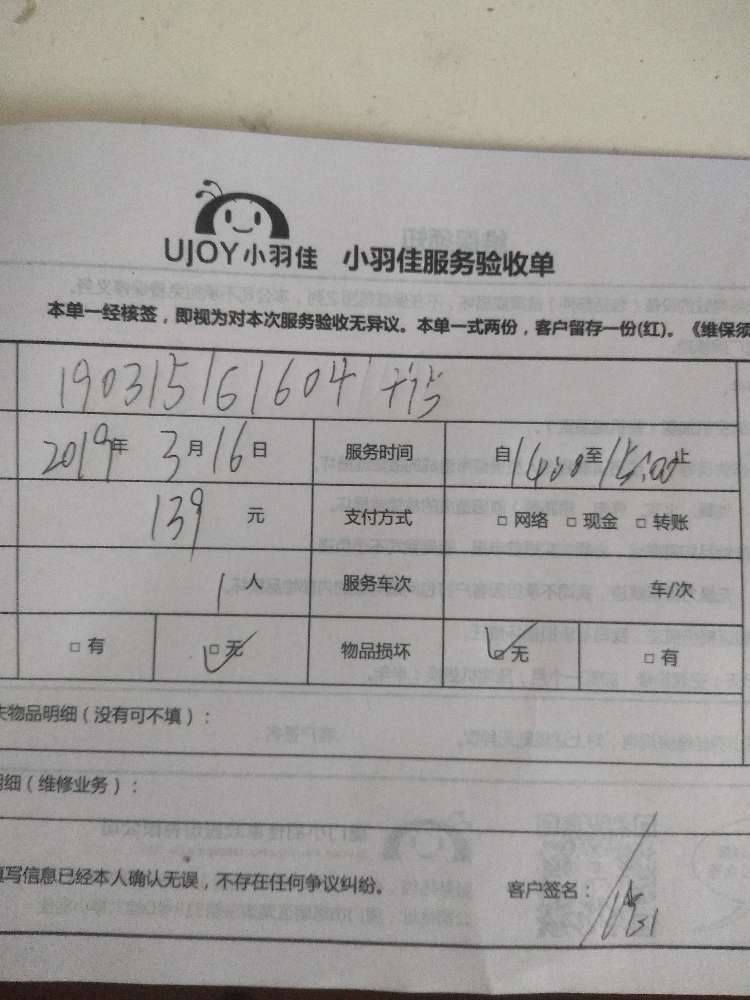 UJOY小羽佳 小羽佳服务验收单
本单一经核签，即视为对本次服务验收无异议。本单一式两份，客户留存一份(红)。《维保须
190315161604
2019年 3月16日 服务时间 自14:00至15:00止
139 元 支付方式 □ 网络 □ 现金 □ 转账
1人 服务车次 车/次
□ 有 □ 无 物品损坏 □ 无 □ 有
失物品明细（没有可不填）：
明细（维修业务）：
填写信息已经本人确认无误，不存在任何争议纠纷。 客户签名：